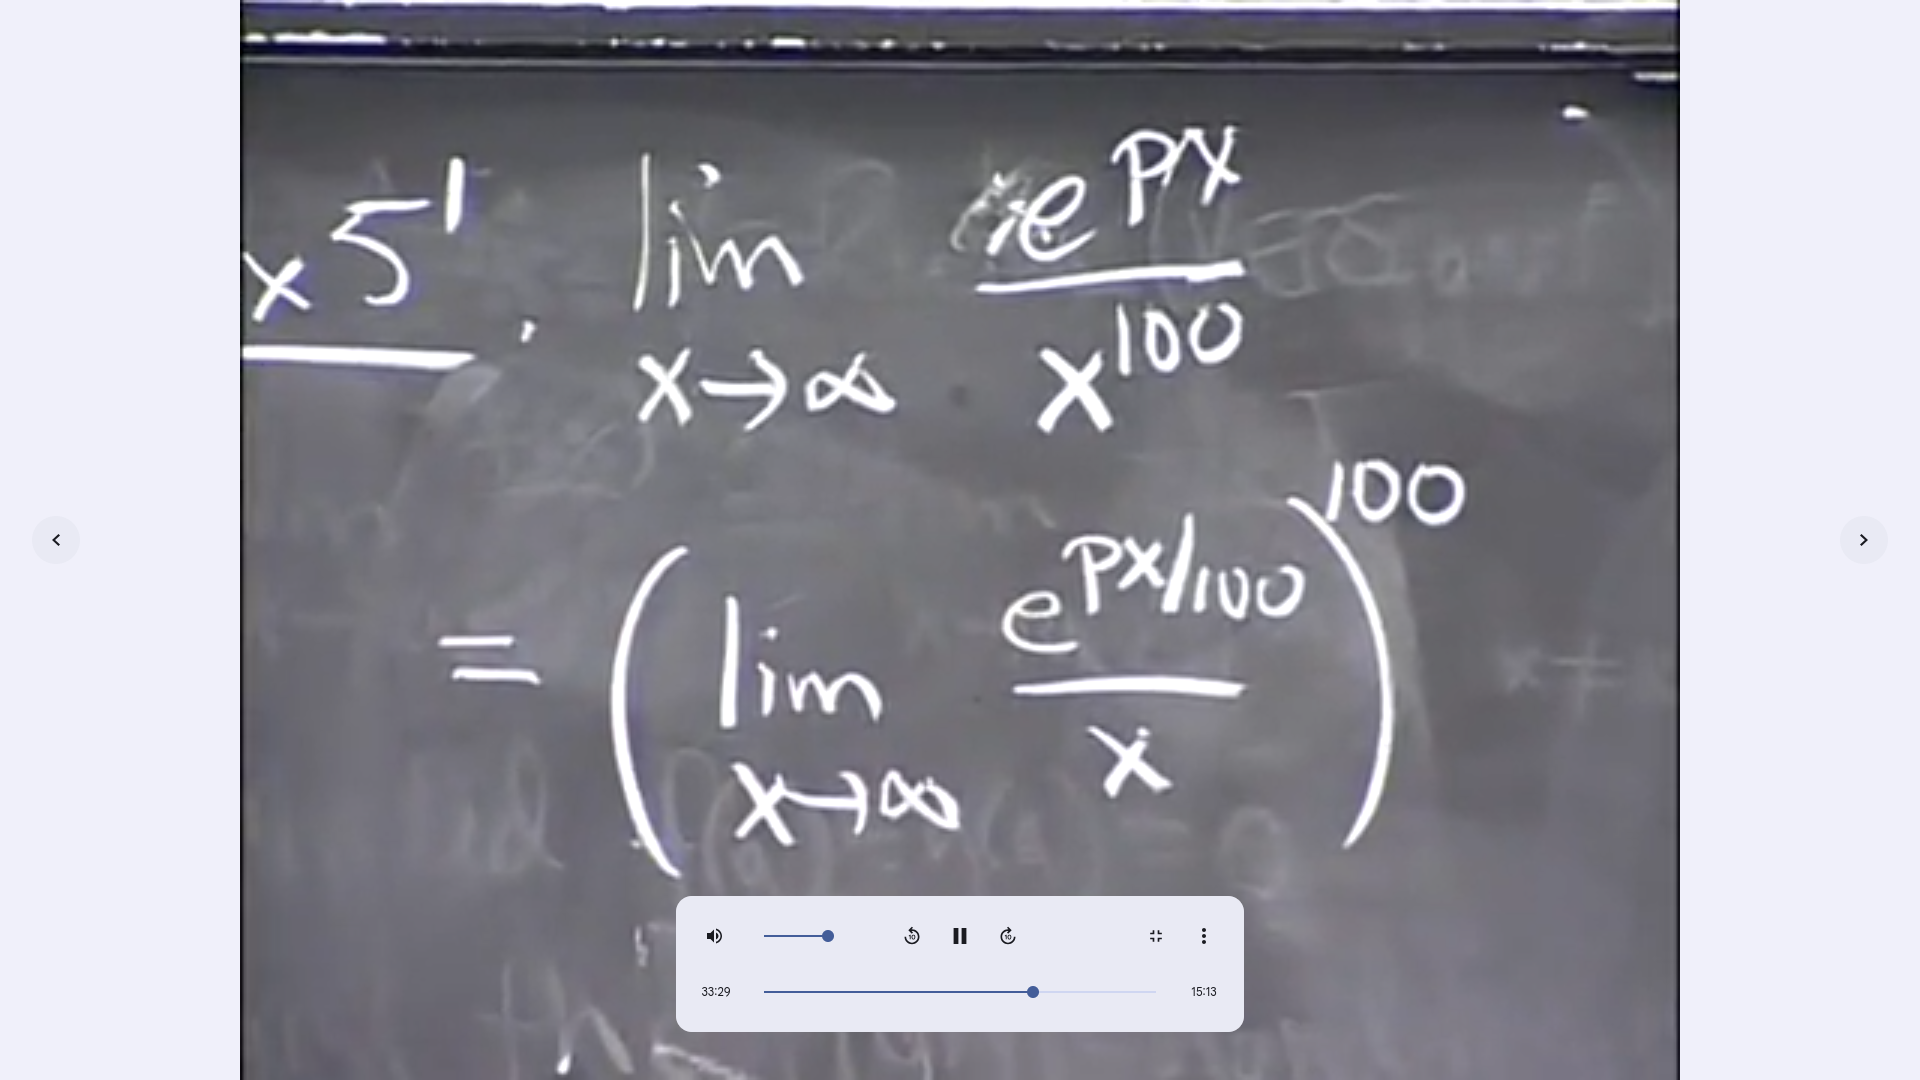 x 5'. lim x→∞ e^px / x^100
= ( lim x→∞ e^px/100 / x )^100
33:29
15:13